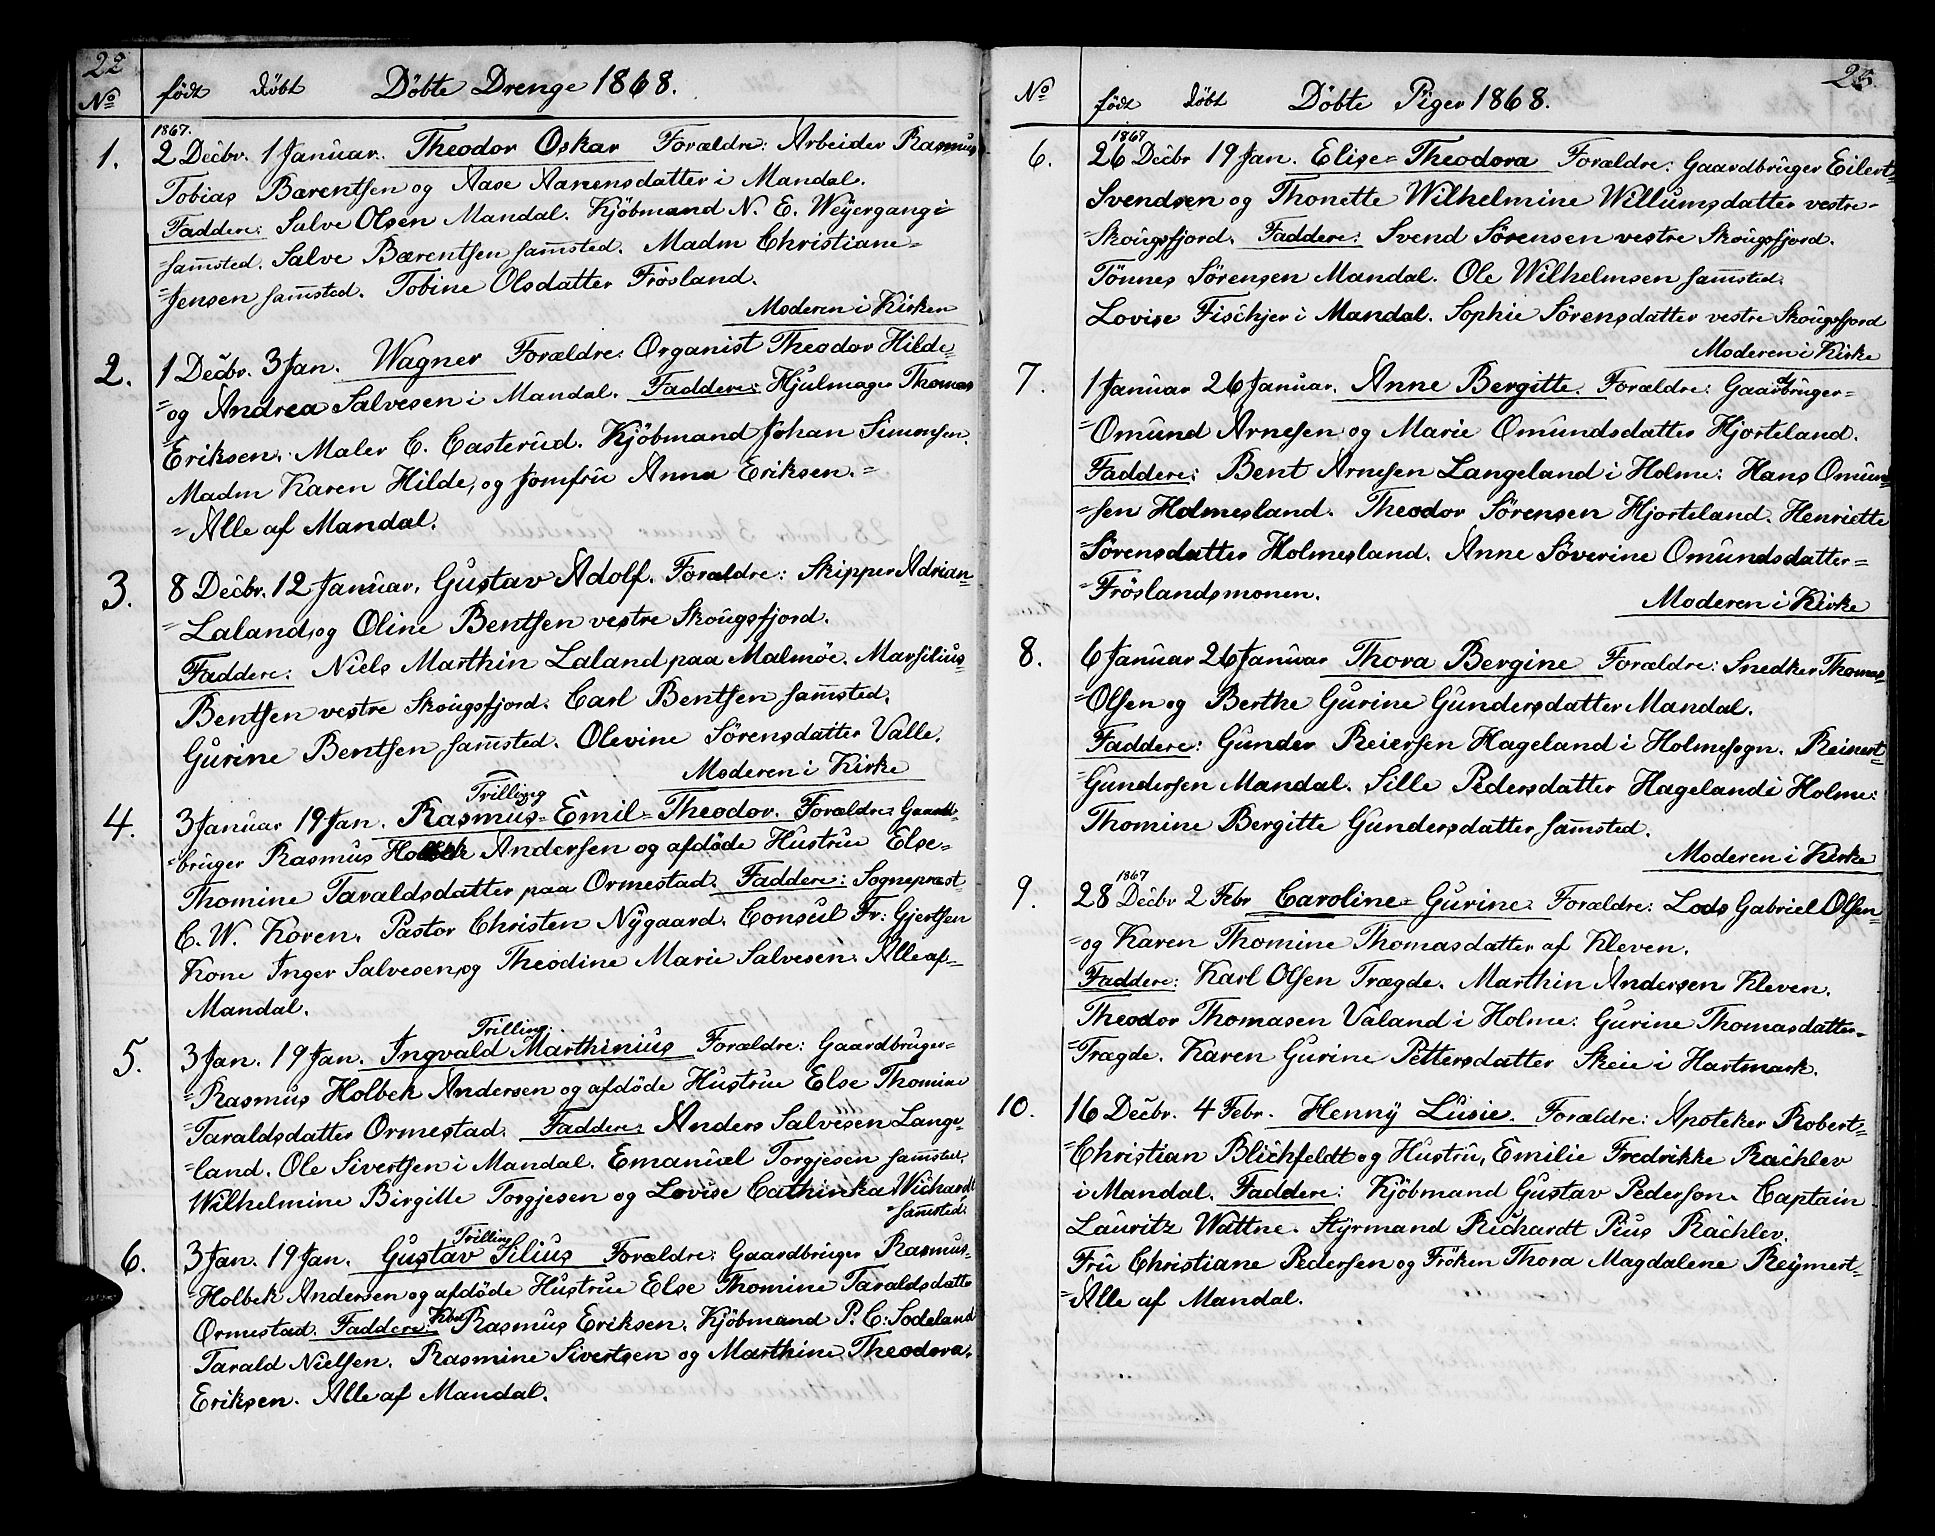 22
No født døbt Döbte Drenge 1868.
1867.
1. 2 Decbr. 1 Januar. Theodor Oskar Forældre: Arbeider Rasmus
Tobias Bærentsen og Aase Aanensdatter i Mandal.
Faddere: Salve Olsen Mandal. Kjöbmand N. E. Weyergang i
=samsted. Salve Bærentsen samsted. Madm Christiane=
=Jensen samsted. Tobine Olsdatter Frösland.
Moderen i Kirken
2. 1 Decbr. 3 Jan. Wagner Forældre: Organist Theodor Hilde=
=og Andrea Salvesen i Mandal. Faddere: Hjulmager Thomas
Eriksen. Maler C. Casterud. Kjöbmand Johan Simonsen.
Madm Karen Hilde, og Jomfru Anna Eriksen.=
=Alle af Mandal.
3. 8 Decbr. 12 Januar. Gustav Adolf. Forældre: Skipper Adrian=
=Laland, og Oline Bentsen vestre Skougsfjord.
Faddere: Niels Marthin Laland paa Malmöe. Marsilius=
Bentsen vestre Skougsfjord. Carl Bentsen samsted.
Gurine Bentsen samsted. Olevine Sörensdatter Valle.
Moderen i Kirke
Trilling
4. 3 Januar 19 Jan. Rasmus=Emil=Theodor. Forældre: Gaard=
=bruger Rasmus Holbek Andersen og afdöde Hustrue Else=
Thomine Taraldsdatter paa Ormestad. Faddere: Sognepræst=
C. W. Koren. Pastor Christen Nygaard. Consul Fr: Gjertsen
Kone Inger Salvesen, og Theodine Marie Salvesen. Alle af=
Mandal.
Trilling.
5. 3 Jan. 19 Jan. Ingvald Marthinius Forældre: Gaardbruger=
=Rasmus Holbek Andersen og afdöde Hustrue Else Thomine
Taraldsdatter Ormestad. Faddere: Anders Salvesen Lange=
=land. Ole Sivertsen i Mandal. Emanuel Torgjesen samsted.
Wilhelmine Birgitte Torgjesen og Lovise Cathinka Wichardt
=samsted.
Trilling
6. 3 Jan. 19 Jan. Gustav Silius Forældre: Gaardbruger Rasmus=
=Holbek Andersen og afdöde Hustrue Else Thomine Taraldsdatter
Ormestad. Faddere: Kbd Rasmus Eriksen. Kjöbmand P. C: Sodeland
Tarald Nielsen. Rasmine Sivertsen og Marthine Theodora.
Eriksen. Alle af Mandal.
23.
No født døbt Döbte Piger 1868.
1867
6. 26 Decbr 19 Jan. Elise=Theodora Forældre: Gaardbruger Eilert=
Svendsen og Thonette Wilhelmine Willumsdatter vestre=
=Skougsfjord. Faddere: Svend Sörensen vestre Skougsfjord.
Tönnes Sörensen Mandal. Ole Wilhelmsen samsted.
Lovise Fischjer i Mandal. Sophie Sörensdatter vestre Skougsfjord
Moderen i Kirke
7. 1 Januar 26 Januar. Anne Bergitte. Forældre: Gaardbruger=
=Omund Arnesen og Marie Omundsdatter Hjorteland.
Faddere: Bent Arnesen Langeland i Holme: Hans Omund=
=sen Holmesland. Theodor Sörensen Hjorteland. Henriette
=Sörensdatter Holmesland. Anne Söverine Omundsdatter=
=Fröslandsmonen. Moderen i Kirke
8. 6 Januar 26 Januar Thora Bergine Forældre: Snedker Thomas=
=Olsen og Berthe Gurine Gundersdatter Mandal.
Faddere: Gunder Reiersen Hageland i Holmesogn. Reinert=
=Gundersen Mandal. Sille Pedersdatter Hageland i Holme:
Thomine Bergitte Gundersdatter samsted.
Moderen i Kirke
1867
9. 28 Decbr 2 Febr Caroline=Gurine. Forældre: Lods Gabriel Olsen=
=og Karen Thomine Thomasdatter af Kleven.
Faddere: Karl Olsen Trægde. Marthin Andersen Kleven.
Theodor Thomasen Valand i Holme: Gurine Thomasdatter=
=Trægde. Karen Gurine Pettersdatter Skeie i Hartmark.
10. 16 Decbr. 4 Febr. Henny Lusie. Forældre: Apoteker Robert=
=Christian Blichfeldt og Hustru, Emilie Fredrikke Rachlev
i Mandal. Faddere: Kjöbmand Gustav Pedersen. Captain
Lauritz Wattne. Styrmand Richardt Pius Rachlev.
Fru Christiane Pedersen og Fröken Thora Magdalene Reymert=
=Alle af Mandal.